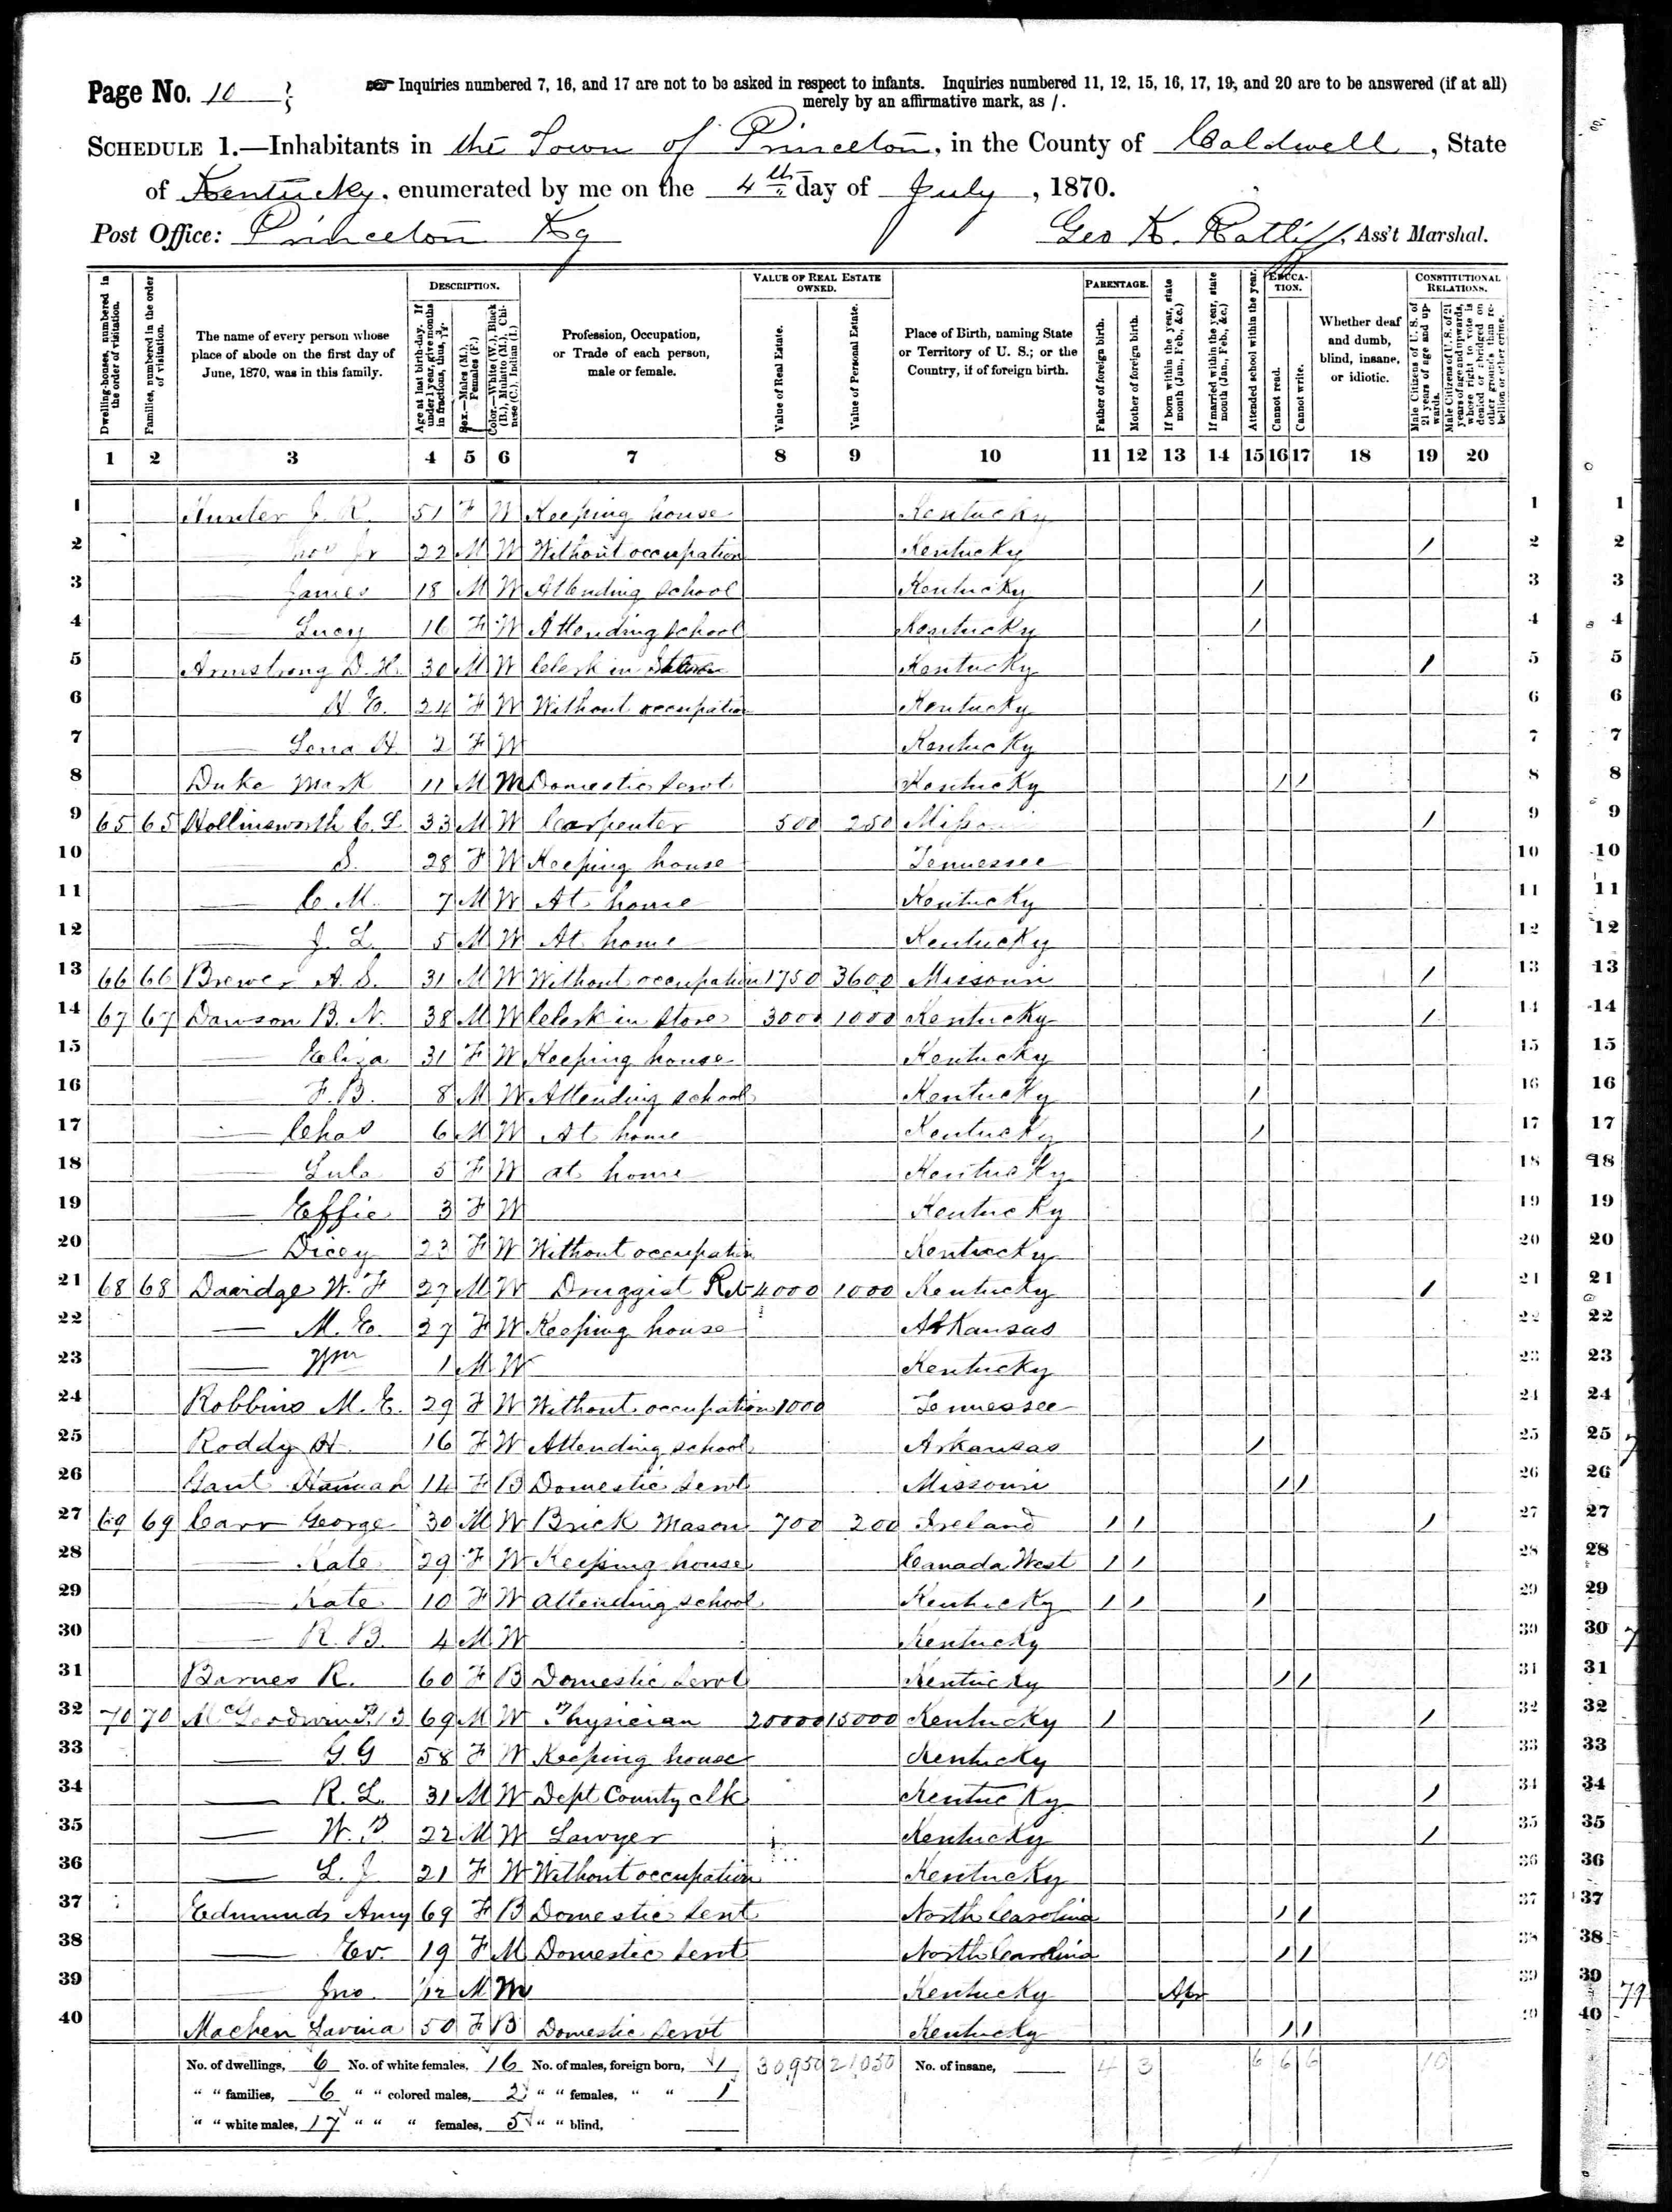 Page No. 10
Inquiries numbered 7, 16, and 17 are not to be asked in respect to infants. Inquiries numbered 11, 12, 15, 16, 17, 19, and 20 are to be answered (if at all)
merely by an affirmative mark, as /.
SCHEDULE 1.—Inhabitants in the Town of Princeton, in the County of Caldwell, State
of Kentucky, enumerated by me on the 4th day of July, 1870.
Post Office: Princeton Ky Geo K. Ratliff, Ass't Marshal.
Dwelling-houses, numbered in the order of visitation.
Families, numbered in the order of visitation.
The name of every person whose place of abode on the first day of June, 1870, was in this family.
DESCRIPTION.
Age at last birth-day. If under 1 year, give months in fractions, thus, 3/12.
Sex.—Males (M.), Females (F.)
Color.—White (W.), Black (B.), Mulatto (M.), Chinese (C.), Indian (I.)
Profession, Occupation, or Trade of each person, male or female.
VALUE OF REAL ESTATE OWNED.
Value of Real Estate.
Value of Personal Estate.
Place of Birth, naming State or Territory of U. S.; or the Country, if of foreign birth.
PARENTAGE.
Father of foreign birth.
Mother of foreign birth.
If born within the year, state month (Jan., Feb., &c.)
If married within the year, state month (Jan., Feb., &c.)
Attended school within the year.
EDUCATION.
Cannot read.
Cannot write.
Whether deaf and dumb, blind, insane, or idiotic.
CONSTITUTIONAL RELATIONS.
Male Citizens of U. S. of 21 years of age and upwards.
Male Citizens of U. S. of 21 years of age and upwards, whose right to vote is denied or abridged on other grounds than rebellion or other crime.
1 2 3 4 5 6 7 8 9 10 11 12 13 14 15 16 17 18 19 20
1 Hunter J. R. 51 F W Keeping house Kentucky 1
2 — Jr 22 M W Without occupation Kentucky / 2
3 — James 18 M W Attending school Kentucky / 3
4 — Lucy 16 F W Attending school Kentucky / 4
5 Armstrong D. H. 30 M W Clerk in Store Kentucky / 5
6 H. E. 24 F W Without occupation Kentucky 6
7 — Lena H 2 F W Kentucky 7
8 Duke Mark 11 M M Domestic Servt Kentucky / / 8
9 65 65 Hollinsworth C. L. 33 M W Carpenter 500 250 / 9
10 — S. 28 F W Keeping house Tennessee 10
11 — C. M. 7 M W At home Kentucky 11
12 — J. L. 5 M W At home Kentucky 12
13 66 66 Brewer A. S. 31 M W Without occupation 1750 3600 Missouri / 13
14 67 67 Dawson B. N. 38 M W Clerk in Store 3000 1000 Kentucky / 14
15 — Eliza 31 F W Keeping house Kentucky 15
16 — F. B. 8 M W Attending school Kentucky / 16
17 — Chas 6 M W At home Kentucky / 17
18 — Lula 5 F W at home Kentucky 18
19 — Effie 3 F W Kentucky 19
20 — Dicey 23 F W Without occupation Kentucky 20
21 68 68 Daridge W. F 27 M W Druggist Ret 4000 1000 Kentucky / 21
22 — M. E. 27 F W Keeping house Arkansas 22
23 — Wm 1 M W Kentucky 23
24 Robbins M. E. 29 F W Without occupation 1000 Tennessee 24
25 Roddy H. 16 F W Attending school Arkansas / 25
26 Gant Hannah 14 F B Domestic Servt Missouri / / 26
27 69 69 Carr George 30 M W Brick Mason 700 200 Ireland / / / 27
28 — Kate 29 F W Keeping house Canada West / / 28
29 — Kate 10 F W attending school Kentucky / / / 29
30 — R. B. 4 M W Kentucky 30
31 Barnes R. 60 F B Domestic Servt Kentucky / / 31
32 70 70 McGoodwin 69 M W Physician 20000 15000 Kentucky / / 32
33 — G G 58 F W Keeping house Kentucky 33
34 — R. L. 31 M W Dept County clk Kentucky / 34
35 — W. P. 22 M W Lawyer Kentucky / 35
36 — L. J 21 F W Without occupation Kentucky 36
37 Edmunds Amy 69 F B Domestic Servt North Carolina / / 37
38 — Ev. 19 F M Domestic Servt North Carolina / / 38
39 — Jno. 1/12 M M Kentucky Apr 39
40 Machen Lavina 50 F B Domestic Servt Kentucky / / 40
No. of dwellings, 6 No. of white females, 16 No. of males, foreign born, 1 30,950 21050 No. of insane, — 4 3 6 6 6 10
" " families, 6 " " colored males, 2 " " females, " " 1
" " white males, 17 " " " females, 5 " " blind, —